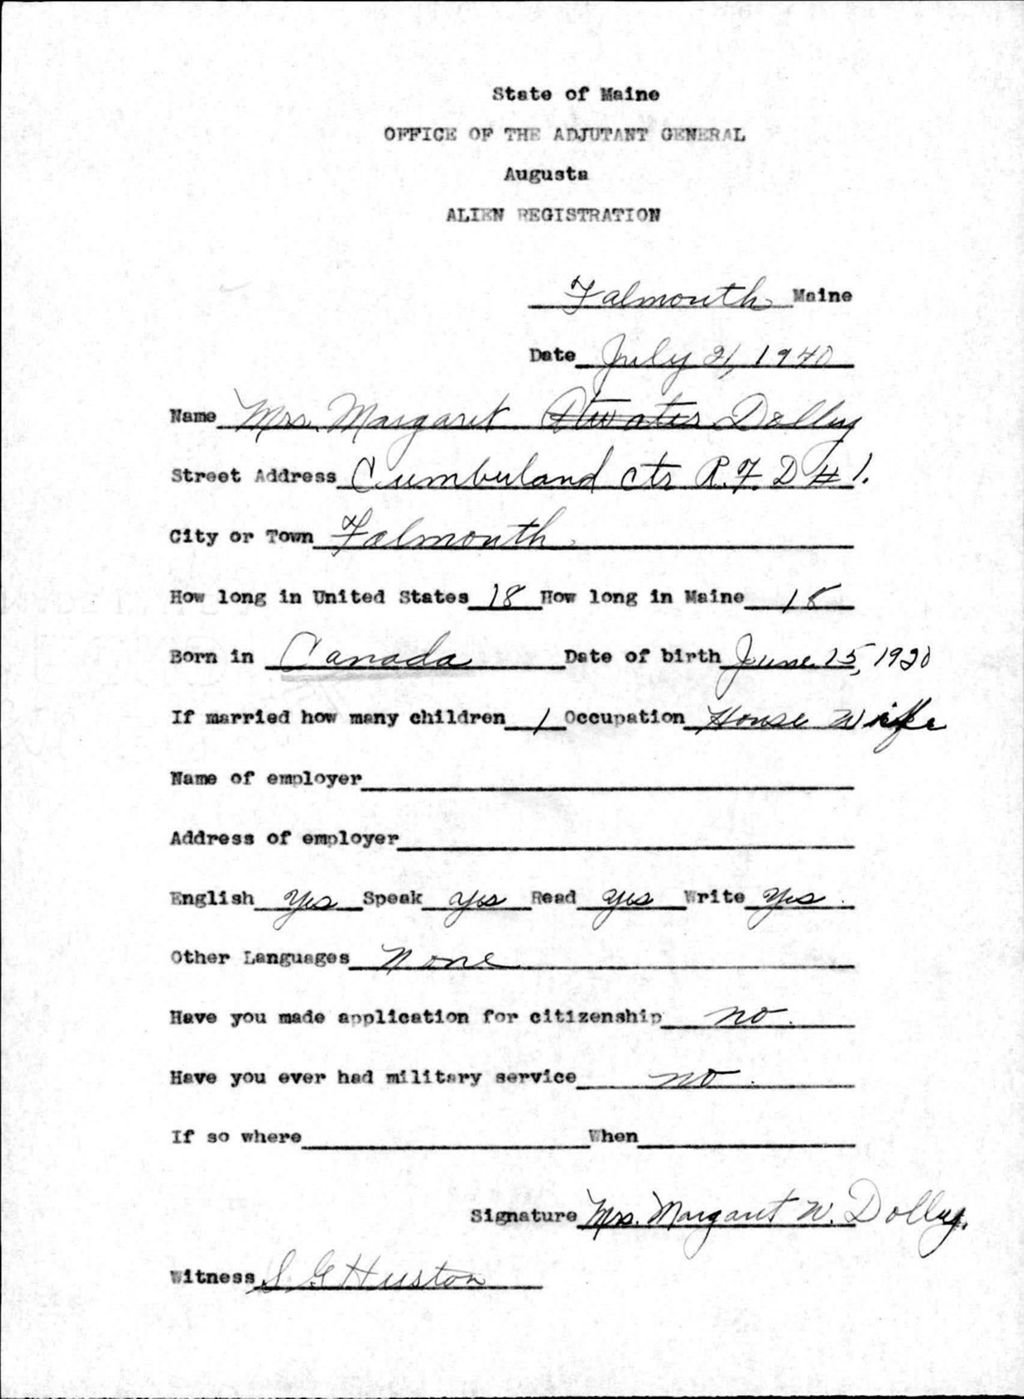 State of Maine
OFFICE OF THE ADJUTANT GENERAL
Augusta
ALIEN REGISTRATION
Falmouth Maine
Date July 21, 1940
Name Mrs. Margaret Dolley
Street Address Cumberland Ctr R.F.D # 1.
City or Town Falmouth.
How long in United States 18 How long in Maine 18
Born in Canada Date of birth June 15, 1920
If married how many children 1 Occupation House Wife
Name of employer
Address of employer
English Yes Speak yes Read yes Write Yes.
Other Languages None
Have you made application for citizenship no.
Have you ever had military service no.
If so where When
Signature Mrs. Margaret W. Dolley.
Witness S G Huston